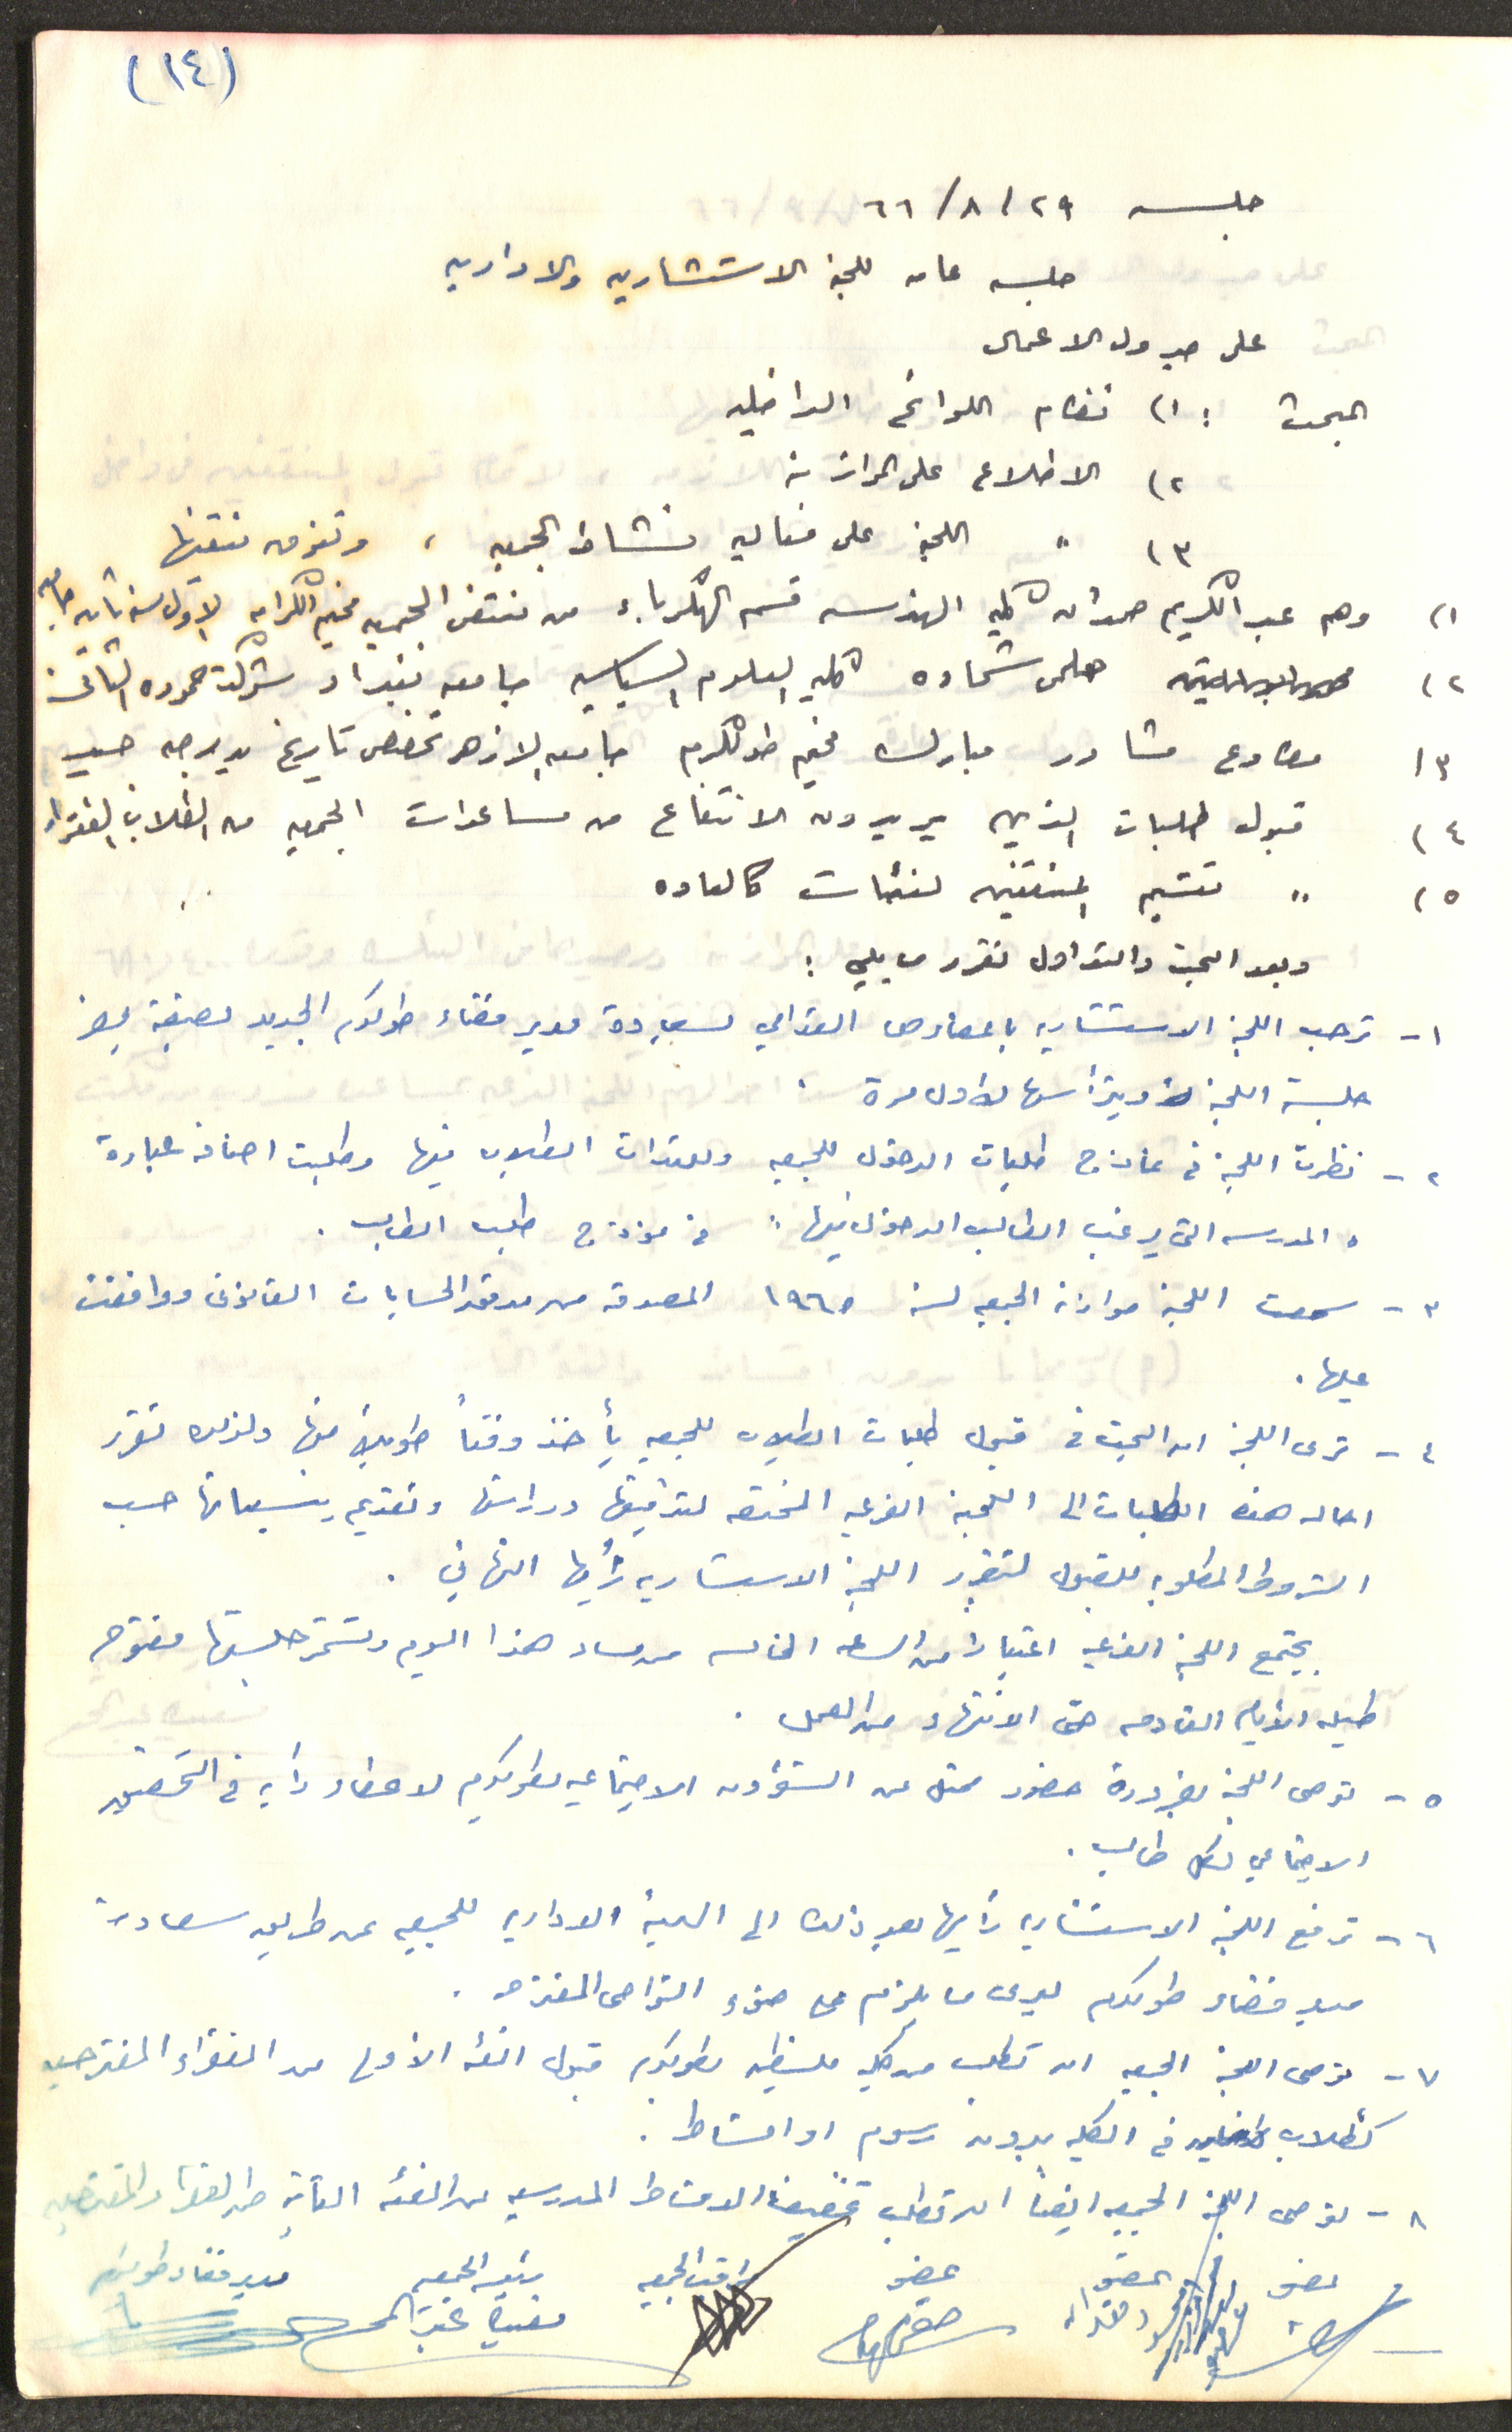 (١٤)
جلسه ٢٩/٨/٦٦
جلسه عامه للجنة الاستشاريه والاداريه
على جدول الاعمال
البحث : ١) نظام اللوائح الداخليه
٢) الاطلاع على الموازنة
٣) " اللجنة على فعاليه نشاط الجمعيه ،
١) وهم عبد الكريم حمدان كلية الهندسه قسم الكهرباء من منتفعي الجمعيه مخيم الكرامه الاول سنه ثانيه جامعه
٢) حلمي شحاده كلية العلوم السياسيه جامعه بغداد
٣) مطاوع مشاور مبارك مخيم طولكرم جامعه الازهر تخصص تاريخ بدرجه جيد
٤) قبول طلبات الذين يريدون الانتفاع من مساعدات الجمعيه من الطلاب الفقراء
٥) " تقسيم المنتفعين لفئات كالعاده
وبعد البحث والتداول تقرر ما يلي :
١- ترحب اللجنة الاستشاريه باعضاءها القدامى لسعادة مدير قضاء طولكرم الجديد بصفته يحضر
جلسة اللجنة ويترأسها لأول مرة
٢- نظرت اللجنة في نماذج طلبات الدخول للجمعيه الطلاب فيها وطلبت اضافة عبارة
" المدرسه التي يرغب الطالب الدخول فيها " في نموذج طلب الطالب .
٣- سمعت اللجنة موازنة الجمعيه لسنة ١٩٦٥ المصدقه من مدقق الحسابات القانوني ووافقت
عليها .
٤- ترى اللجنة ان البحث في قبول طلبات الطلاب للجمعيه يأخذ وقتاً طويلاً منها ولذلك تقرر
احاله هذه الطلبات الى اللجنة الفرعيه المختصه لتدقيقها ودراستها وتقديم تنسيباتها حسب
الشروط المطلوبه للقبول لتقرر اللجنة الاستشاريه رأيها النهائي .
يجتمع اللجنة الفرعيه اعتباراً من الساعه الخامسه من مساء هذا اليوم وتستمر جلستها مفتوحه
طيله الأيام القادمه حتى الانتهاء من العمل .
٥- توصي اللجنة بضرورة حضور ممثل عن الشؤون الاجتماعيه بطولكرم لاعطاء رأيه في التحقيق
الاجتماعي لكل طالب .
٦- ترفع اللجنة الاستشاريه رأيها بعد ذلك الى الهيئة الاداريه للجمعيه عن طريق سعادة
مدير قضاء طولكرم ليرى ما يلزم على ضوء النواحي المقترحه .
٧- توصي اللجنة الجمعيه ان تطلب من كلية فلسطين بطولكرم قبول الفئه الأولى من الفقراء المقترحين
كطلاب في الكليه بدون رسوم او اقساط .
٨- توصي اللجنة الجمعيه ايضاً ان تطلب تخفيض الاقساط المدرسيه من الفئه الثانيه من الفقراء المقترحين
عضو عضو عضو مراقب الجمعيه رئيسه الجمعيه مدير قضاء طولكرم